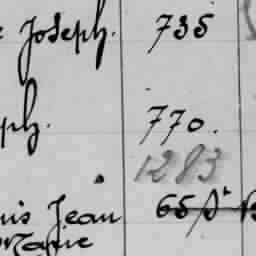 Joseph. 735
ph. 770.
1283
Jean 65
Marie